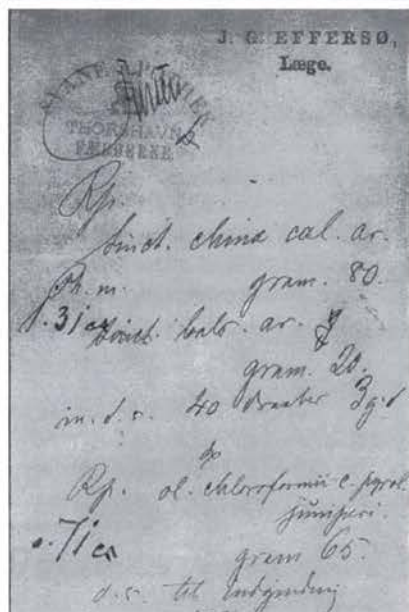 J. G. EFFERSØ,
Læge.
SVANE APOTHEK
THORSHAVN
FÆRØERNE
Rp.
tinct. chinæ cal. ar.
gram. 80.
tinct. ar.
gram. 20.
m. d. s. 40 draaber 3 g. d
Rp. ol. chloroformii c. pyrol.
juniperi.
gram 65.
d. s. til Indgnidning